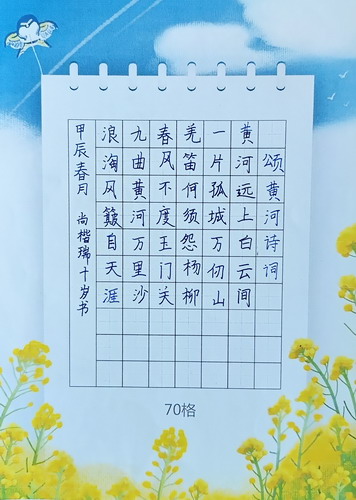 颂黄河诗词
黄河远上白云间
一片孤城万仞山
羌笛何须怨杨柳
春风不度玉门关
九曲黄河万里沙
浪淘风簸自天涯
甲辰春月 尚楷瑞十岁书
70格